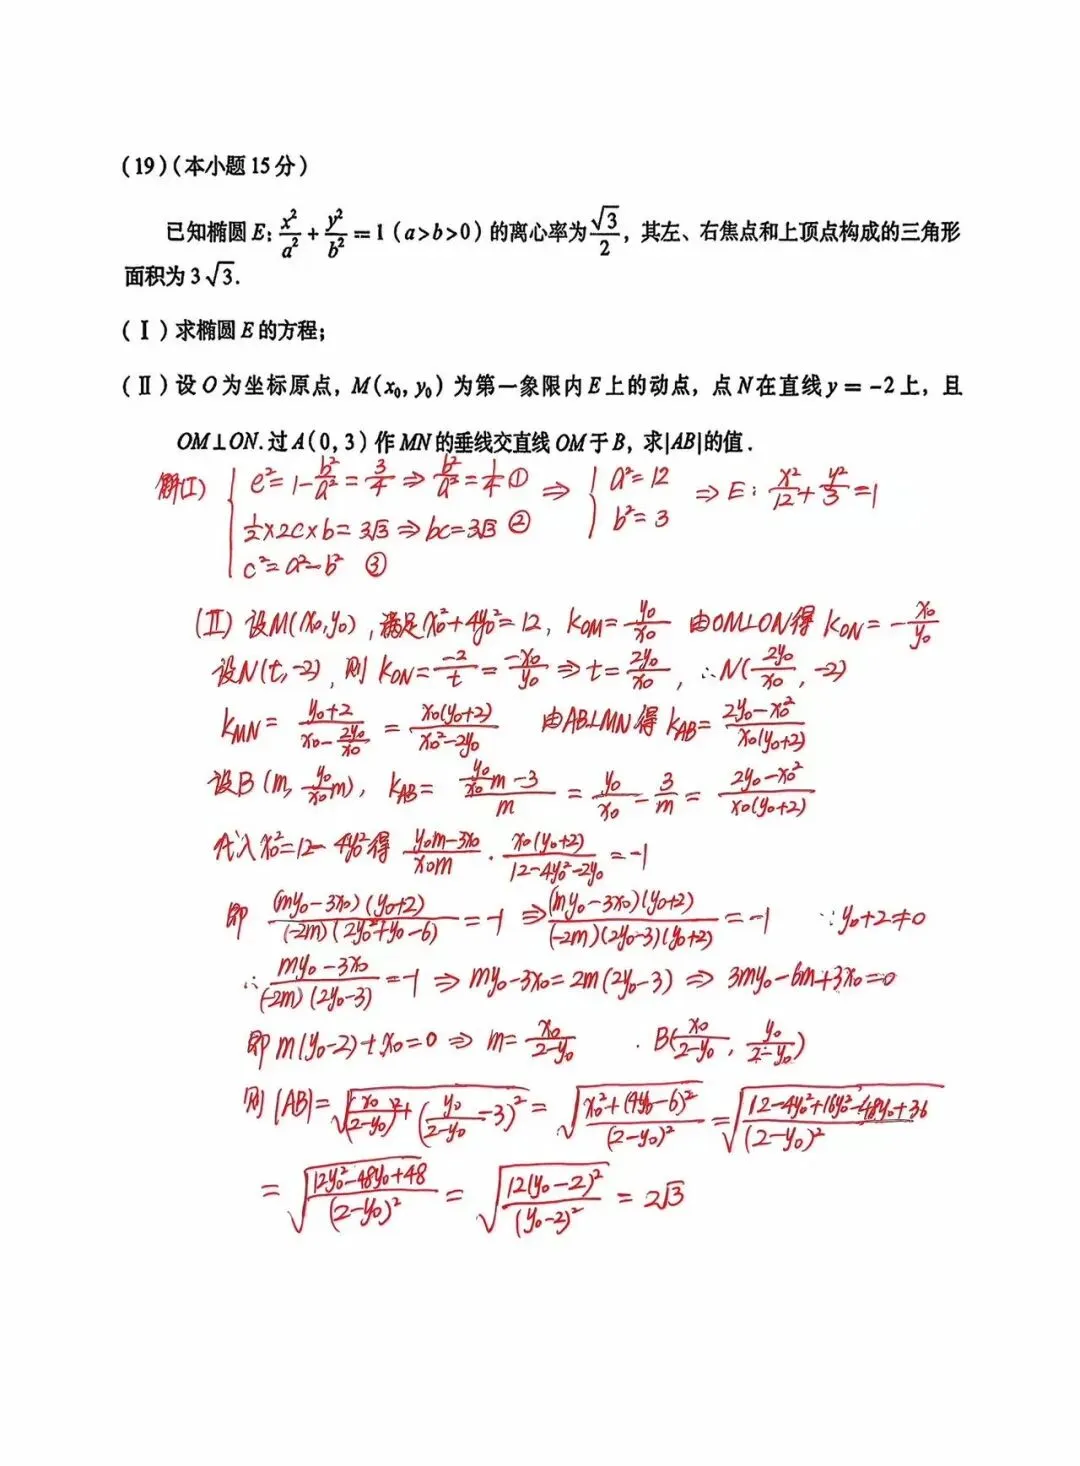 (19)(本小题15分)
已知椭圆E: x²/a² + y²/b² = 1 (a>b>0)的离心率为√3/2，其左、右焦点和上顶点构成的三角形
面积为3√3.
(Ⅰ)求椭圆E的方程;
(Ⅱ)设O为坐标原点，M(x₀, y₀)为第一象限内E上的动点，点N在直线y = -2上，且
OM⊥ON.过A(0, 3)作MN的垂线交直线OM于B，求|AB|的值.
解(Ⅰ) { e²=1-b²/a²=3/4 ⇒ b²/a²=1/4 ① ⇒ { a²=12 ⇒ E: x²/12+y²/3=1
½×2c×b=3√3 ⇒ bc=3√3 ② b²=3
c²=a²-b² ③
(Ⅱ) 设M(x₀,y₀), 满足x₀²+4y₀²=12, k_OM=y₀/x₀ 由OM⊥ON得 k_ON=-x₀/y₀
设N(t,-2), 则 k_ON=-2/t=-x₀/y₀ ⇒ t=2y₀/x₀, ∴N(2y₀/x₀, -2)
k_MN=(y₀+2)/(x₀-2y₀/x₀)=x₀(y₀+2)/(x₀²-2y₀) 由AB⊥MN得 k_AB=(2y₀-x₀²)/(x₀(y₀+2))
设B(m, y₀/x₀ m), k_AB=(y₀/x₀ m-3)/m=y₀/x₀-3/m=(2y₀-x₀²)/(x₀(y₀+2))
代入x₀²=12-4y₀²得 (y₀m-3x₀)/(x₀m)·x₀(y₀+2)/(12-4y₀²-2y₀)=-1
即 (my₀-3x₀)(y₀+2)/((-2m)(2y₀²+y₀-6))=-1 ⇒ (my₀-3x₀)(y₀+2)/((-2m)(2y₀-3)(y₀+2))=-1 ∵y₀+2≠0
∴ (my₀-3x₀)/((-2m)(2y₀-3))=-1 ⇒ my₀-3x₀=2m(2y₀-3) ⇒ 3my₀-6m+3x₀=0
即 m(y₀-2)+x₀=0 ⇒ m=x₀/(2-y₀) . B(x₀/(2-y₀), y₀/(2-y₀))
则 |AB|=√((x₀/(2-y₀))²+(y₀/(2-y₀)-3)²)=√((x₀²+(4y₀-6)²)/(2-y₀)²)=√((12-4y₀²+16y₀²-48y₀+36)/(2-y₀)²)
=√((12y₀²-48y₀+48)/(2-y₀)²)=√(12(y₀-2)²/(y₀-2)²)=2√3